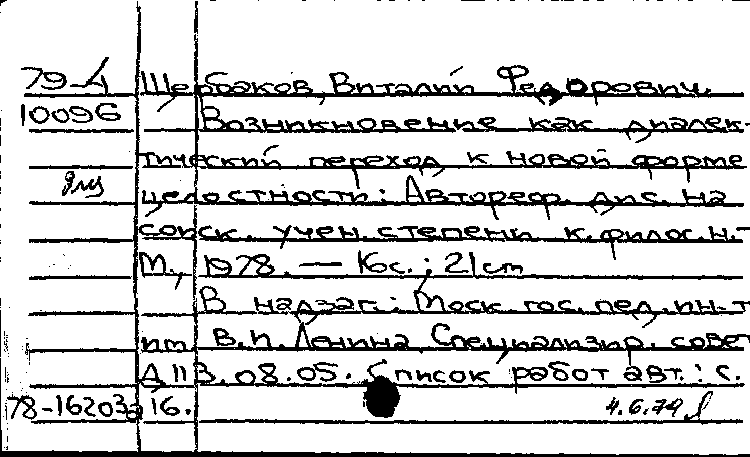 79-4 Щербаков, Виталий Федорович.
10096 Возникновение как диалек-
тический переход к новой форме
целостности: Автореф. дис. на
соиск. учен. степени к. филос. н.-
М., 1978. — 16 с.; 21 cm
В надзаг.: Моск. гос. пед. ин-т
им. В.И. Ленина. Специализир. совет
Д 113.08.05. Список работ авт.: с.
78-16203 16. 4.6.79